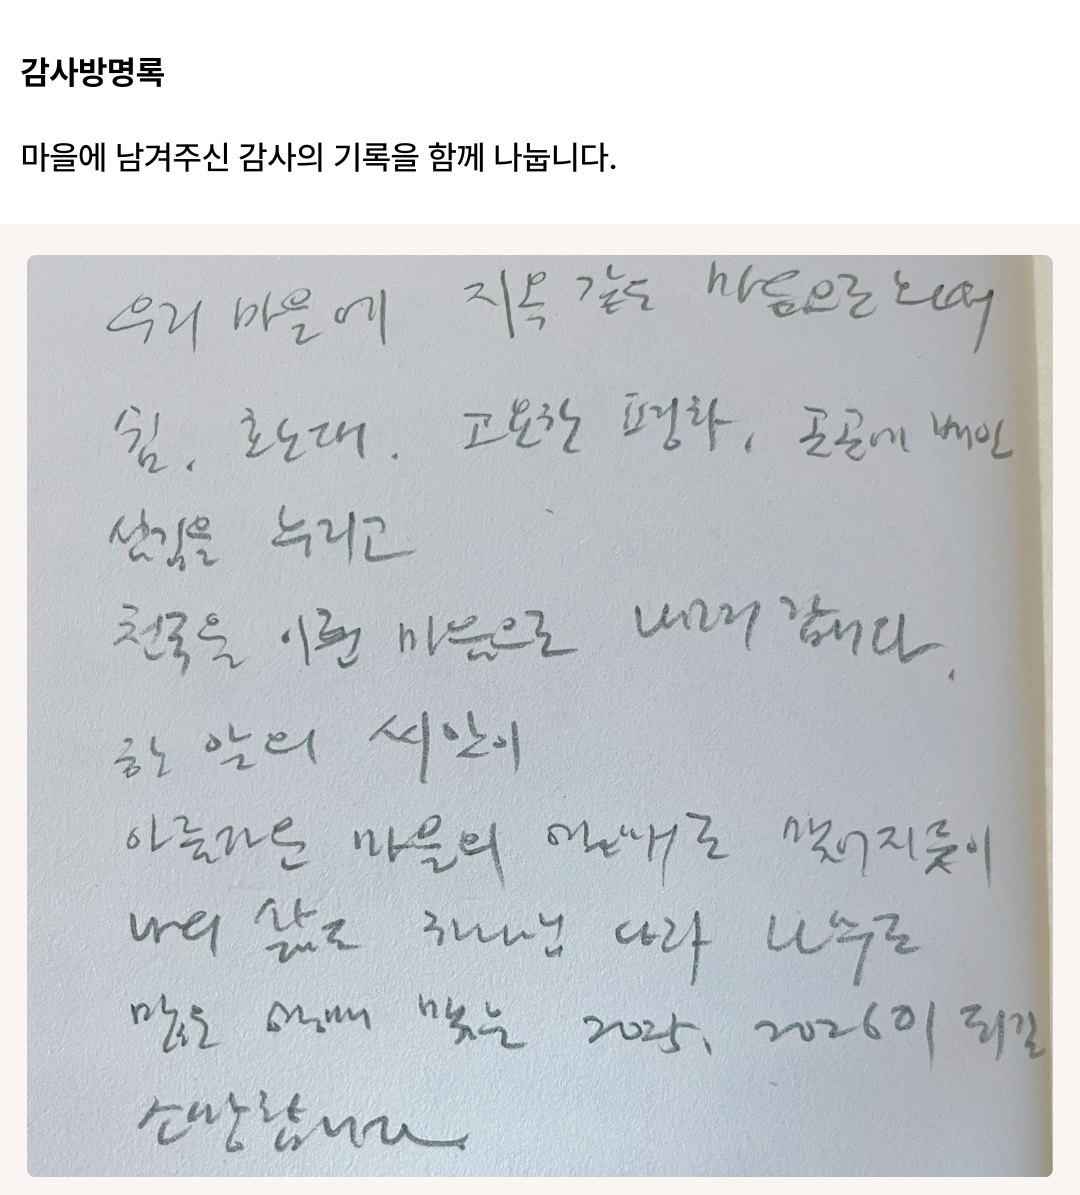 감사방명록
마을에 남겨주신 감사의 기록을 함께 나눕니다.
우리 마을에 마음으로
쉼, 환대. 고요한 평화, 곳곳에 베인
섬김을 누리고
천국을 이런 마음으로 내려 갑니다.
한 알의 씨앗이
아름다운 마을의 열매로 맺어지듯이
나의 삶도 하나님 나라
많은 열매 맺는 2025, 2026이 되길
소망합니다